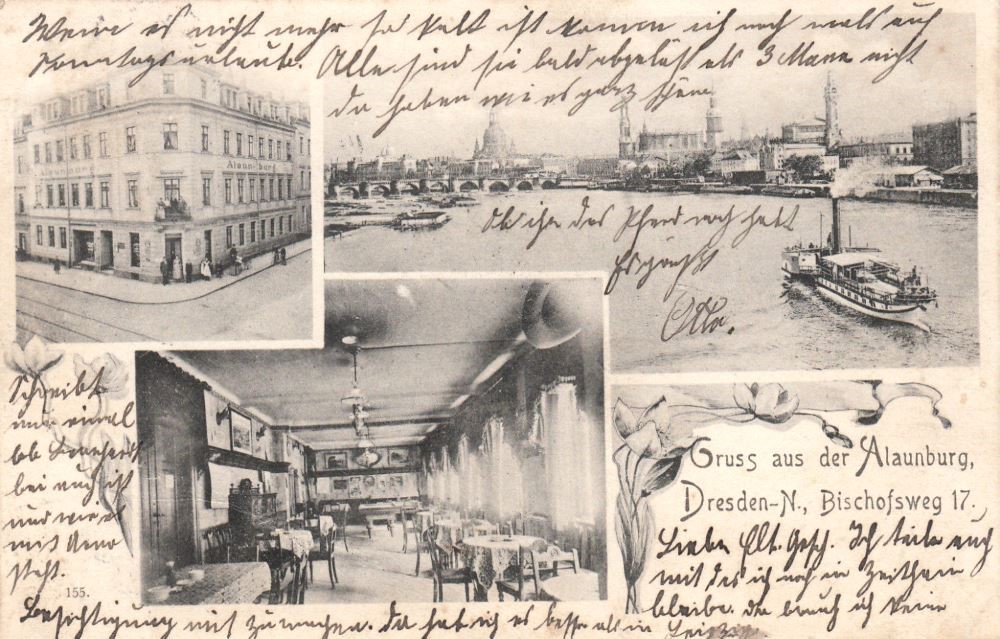 Wenn es nicht mehr so kalt ist komm ich noch mals auf
Sonntagsurlaub. Alle sind sie bald abgelöst als 3 Mann nicht
da haben wir es ganz schön
Alaunburg
Alaunburg
Ob ihr das Pferd noch habt
Otto.
Schreibt
mir einmal
ob
bei euch ist
und wie es
mit
steht.
155.
Gruss aus der Alaunburg,
Dresden-N., Bischofsweg 17.
Liebe Elt. Gesch. Ich teile euch
mit das ich noch in Zeithain
bleibe. da brauch ich keine
Besichtigung mit zumachen. da hab ich es besser als in Leipzig